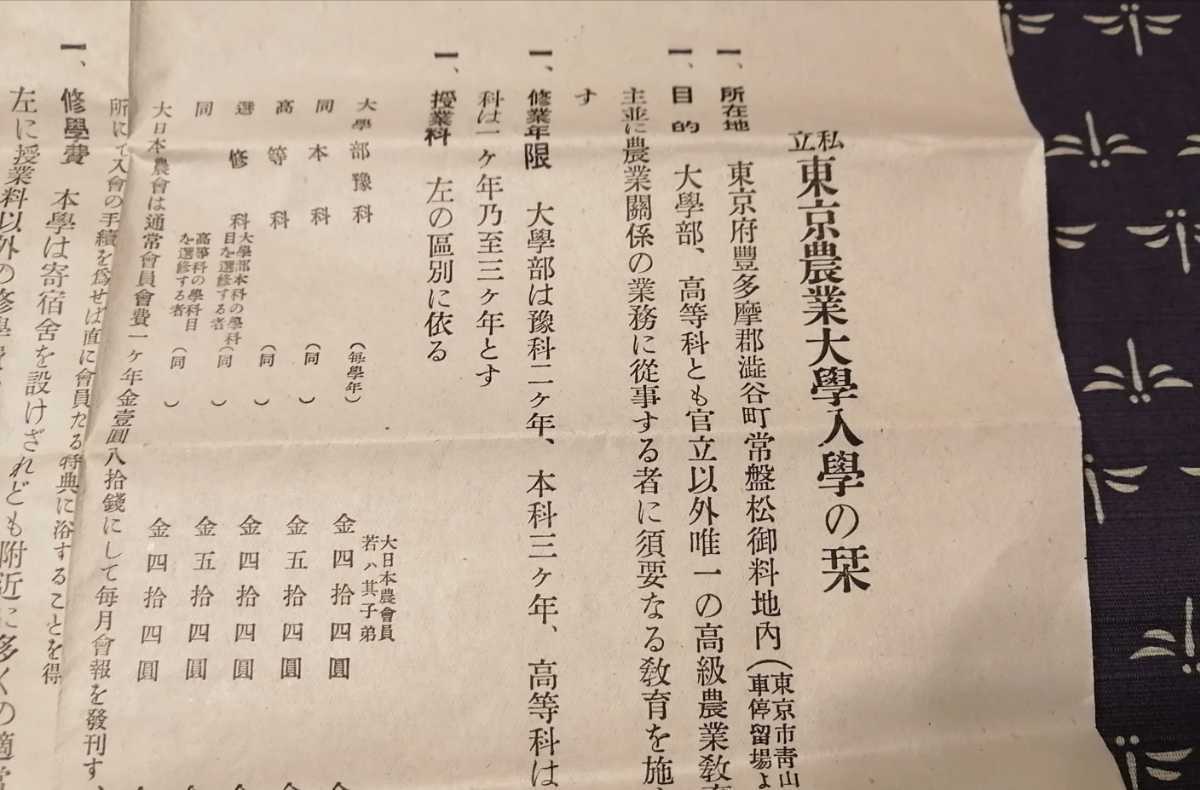 私立東京農業大學入學の栞
一、所在地　東京府豐多摩郡澁谷町常盤松御料地內（東京市靑山
車停留場よ
一、目的　大學部、高等科とも官立以外唯一の高級農業敎
主並に農業關係の業務に從事する者に須要なる敎育を施
す
一、修業年限　大學部は豫科二ヶ年、本科三ヶ年、高等科は
科は一ヶ年乃至三ヶ年とす
一、授業料　左の區別に依る
大日本農會員
若ハ其子弟
大學部豫科（每學年）金四拾四圓
同本科（同）金五拾四圓
高等科（同）金四拾四圓
選修科大學部本科の學科目を選修する者（同）金五拾四圓
同高等科の學科目を選修する者（同）金四拾四圓
大日本農會は通常會員會費一ヶ年金壹圓八拾錢にして每月會報を發刊す
所にて入會の手續を爲せば直に會員たる特典に浴することを得
一、修學費　本學は寄宿舍を設けざれども附近に多くの適
左に授業料以外の修學費